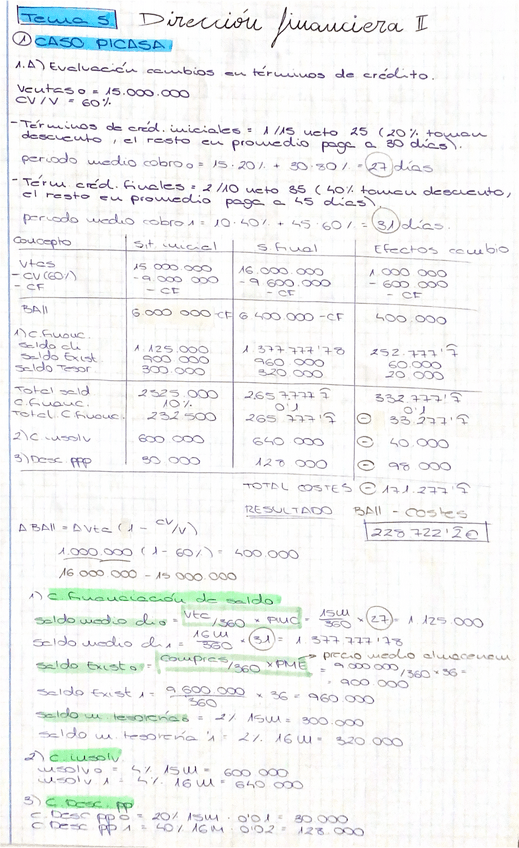 Tema 5 Dirección financiera II
① CASO PICASA
1.A) Evaluación cambios en términos de crédito.
Ventas 0 = 15.000.000
CV/V = 60%
- Términos de créd. iniciales = 1/15 neto 25 (20% toman
descuento, el resto en promedio paga a 30 días).
periodo medio cobro 0 = 15·20% + 30·80% = 27 días
- Térm. créd. finales = 2/10 neto 35 (40% toman descuento,
el resto en promedio paga a 45 días).
periodo medio cobro 1 = 10·40% + 45·60% = 31 días.
Concepto Sit. inicial S final Efectos cambio
Vtas 15 000 000 16.000.000 1.000 000
- CV (60%) -9 000 000 -9 600.000 - 600.000
- CF - CF - CF - CF
BAII 6 000 000 -CF 6 400 000 -CF 400.000
1) C. financ.
Saldo cli 1.125.000 1 377 777'78 252.777'7̂
Saldo Exist. 900 000 960 000 60.000
Saldo Tesor 300.000 320 000 20.000
Total sald 2325.000 2657777'7̂ 332.777'7̂
C. financ. 10% 0'1 0'1
Total C. financ. 232 500 265 777'7̂ ⊖ 33.277'7̂
2) C insolv 600 000 640 000 ⊖ 40.000
3) Desc. ppp 30 000 128 000 ⊖ 98 000
TOTAL COSTES ⊖ 171.277'7̂
RESULTADO BAII - costes
228 722'2̂ €
Δ BAII = Δ Vta (1 - CV/V)
1.000.000 (1 - 60%) = 400.000
16 000 000 - 15 000 000
1) C. financiación de saldo
saldo medio cli 0 = Vtc/360 × PMC = 15M/360 × 27 = 1 125.000
saldo medio cli 1 = 16M/360 × 31 = 1 377 777'78
saldo Exist 0 = Compras/360 × PME → precio medio almacenam
= 9 000 000/360 × 36 =
= 900 000
saldo Exist 1 = 9 600 000/360 × 36 = 960 000
saldo m. tesorería 0 = 2% 15M = 300.000
saldo m. tesorería 1 = 2% 16M = 320 000
2) C. insolv.
insolv 0 = 4% 15M = 600 000
insolv 1 = 4% 16M = 640 000
3) C. Desc. pp
C. Desc pp 0 = 20% 15M · 0'01 = 30 000
C Desc pp 1 = 40% 16M · 0'02 = 128.000